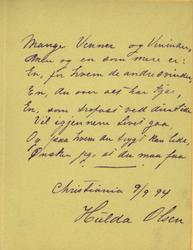 Mange Venner og Veninder,
Men og en som mere er:
En, for hvem de andre svinder,
En, du over alt har kjær,
En, som trofast ved din Side
Vil igjennem Livet gaa
Og paa hvem du trygt kan lide,
Ønsker jeg, at du maa faa.
Christiania 9/9 94
Hulda Olsen